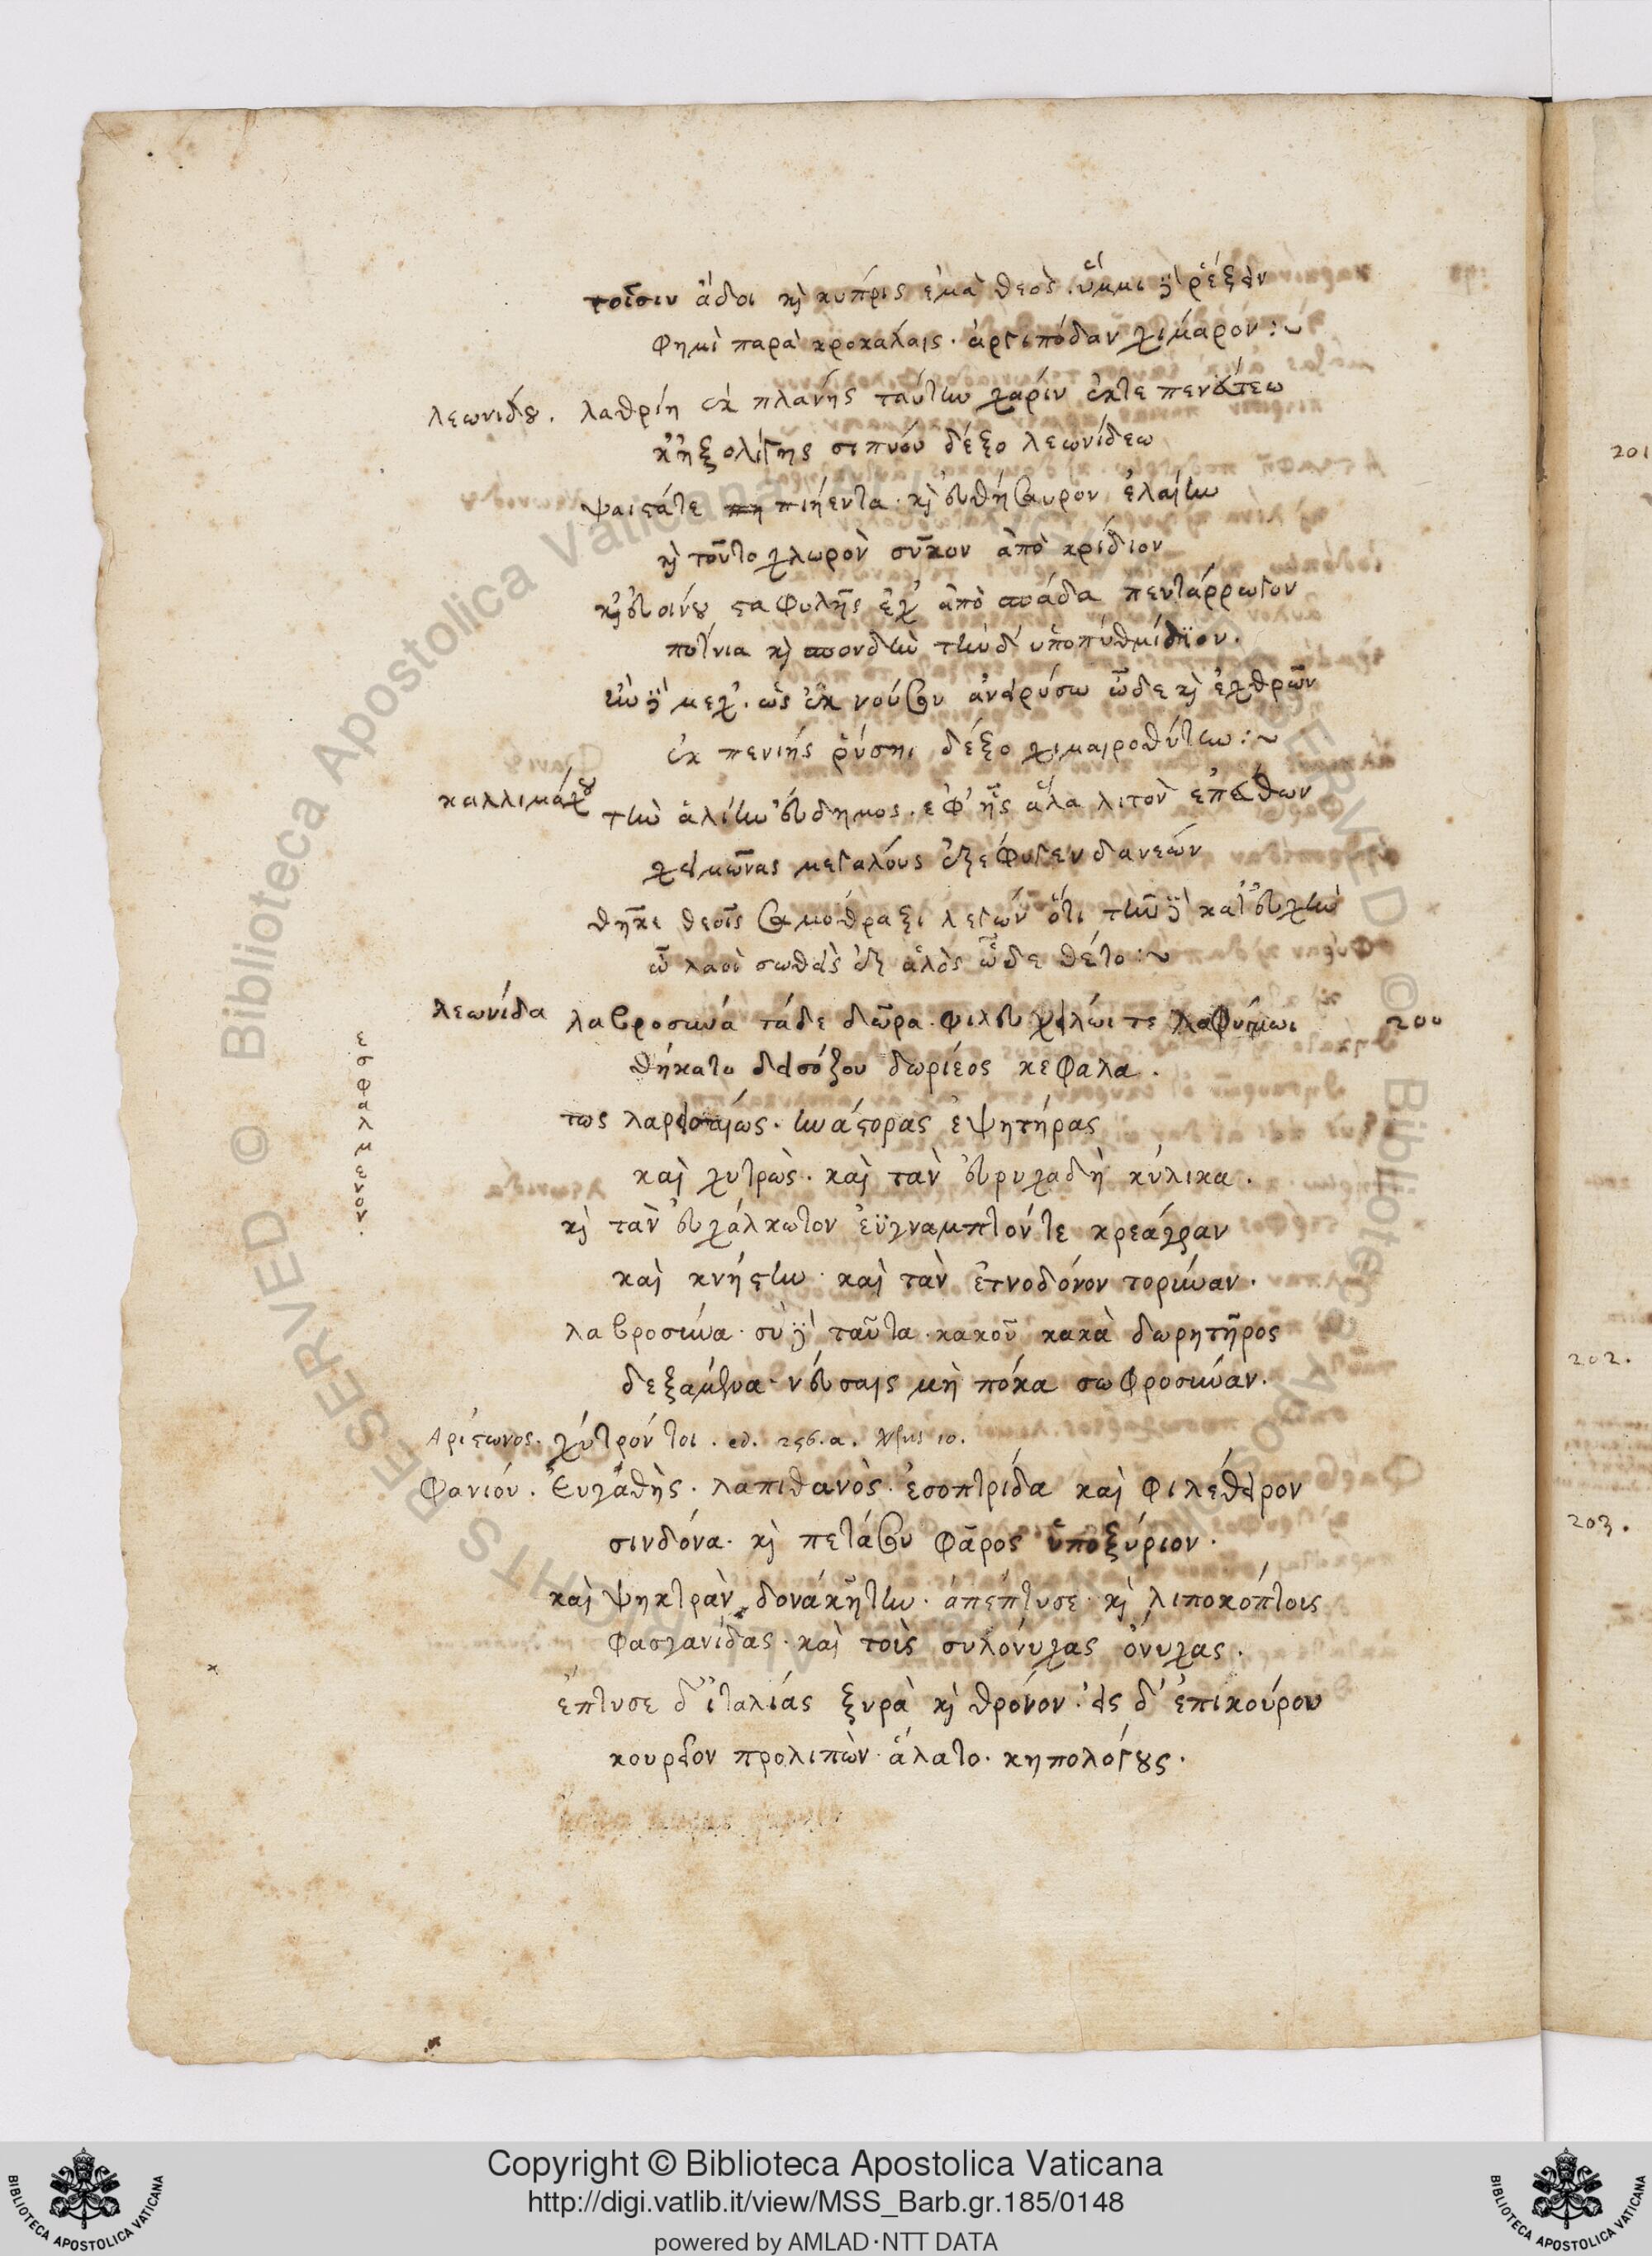 τοῖσιν ἅδοι κὴ κυπρις ἐμὰ θεὸς. ὔμμι δὲ ῥέξειν
φημὶ παρὰ κροκάλαις. ἀρτιπόδαν χίμαρον :~
λεωνίδου. λαθρίη ἐκ πλάνης ταύτην χάριν ἔκτε πενέστεω
κἠξ ὀλίγης σιπύου δέξο λεωνίδεω
ψαιστά τε πιήεντα. καὶ εὐθήσαυρον ἐλαίην
καὶ τοῦτο χλωρὸν σῦκον ἀπὸ κρίδιον
κεὐοίνου σταφυλῆς ἔχ' ἀπὸ σπάδα πεντάρρωγον
πότνια καὶ σπονδὴν τήνδ' ὑποπυθμίδιον.
ἢν δὲ μεχ'. ὡς ἐκ νούσου ἀνειρύσω ὧδε καὶ ἐχθρῶν
ἐκ πενίης ῥύσηι δέξο χιμαιροθύτην :~
καλλιμάχου τὴν ἁλίην εὔδημος. ἐφ' ἧς ἅλα λιτὸν ἐπελθὼν
χειμῶνας μεγάλους ἐξέφυγεν δανεών
θῆκε θεοῖς σαμόθραξι λέγων ὅτι τὴν δὲ κατ' εὐχὴν
ὦ λαοὶ σωθεὶς ἐξ ἁλὸς ὧδε θέτο :~
λεωνίδα λαβροσύνα τάδε δῶρα. φιλευ χείλωι τε λαφύγμωι 200
θήκατο δεισόζου δωριέος κεφαλα.
τως λαρισσαίως. κυάτορας ἑψητήρας
καὶ χύτρως. καὶ τὰν εὐρυχαδῆ κύλικα.
καὶ τὰν εὐχάλκωτον ἐΰγναμπτόν τε κρεάγραν
καὶ κνῆστιν. καὶ τὰν ἐτνοδόνον τορύναν.
λαβροσύνα. σὺ δὲ ταῦτα. κακοῦ κακὰ δωρητῆρος
δεξαμένα. νεύσαις μή ποκα σωφροσύναν.
εσφαλμενον.
Αρίστωνος. χύτρόν τοι. ed. 256.a. Vsus 10.
Φανιόυ. Ευγάθης. λαπιθανὸς. ἐσοπτρίδα καὶ φιλέθειρον
σινδόνα. καὶ πετάσου φᾶρος ὑποξύριον.
καὶ ψηκτρὰν δονακῆτιν. ἀπέπτυσε. καὶ λιποκόπτους
φασγανίδας. καὶ τοὺς συλόνυχας ὄνυχας.
ἔπτυσε δ' ἰταλίας ξυρὰ καὶ θρόνον. εἰς δ' ἐπικούρου
κουρεῖον προλιπὼν. ἅλατο. κηπολόγους.
201
202.
203.
Copyright © Biblioteca Apostolica Vaticana
http://digi.vatlib.it/view/MSS_Barb.gr.185/0148
powered by AMLAD·NTT DATA